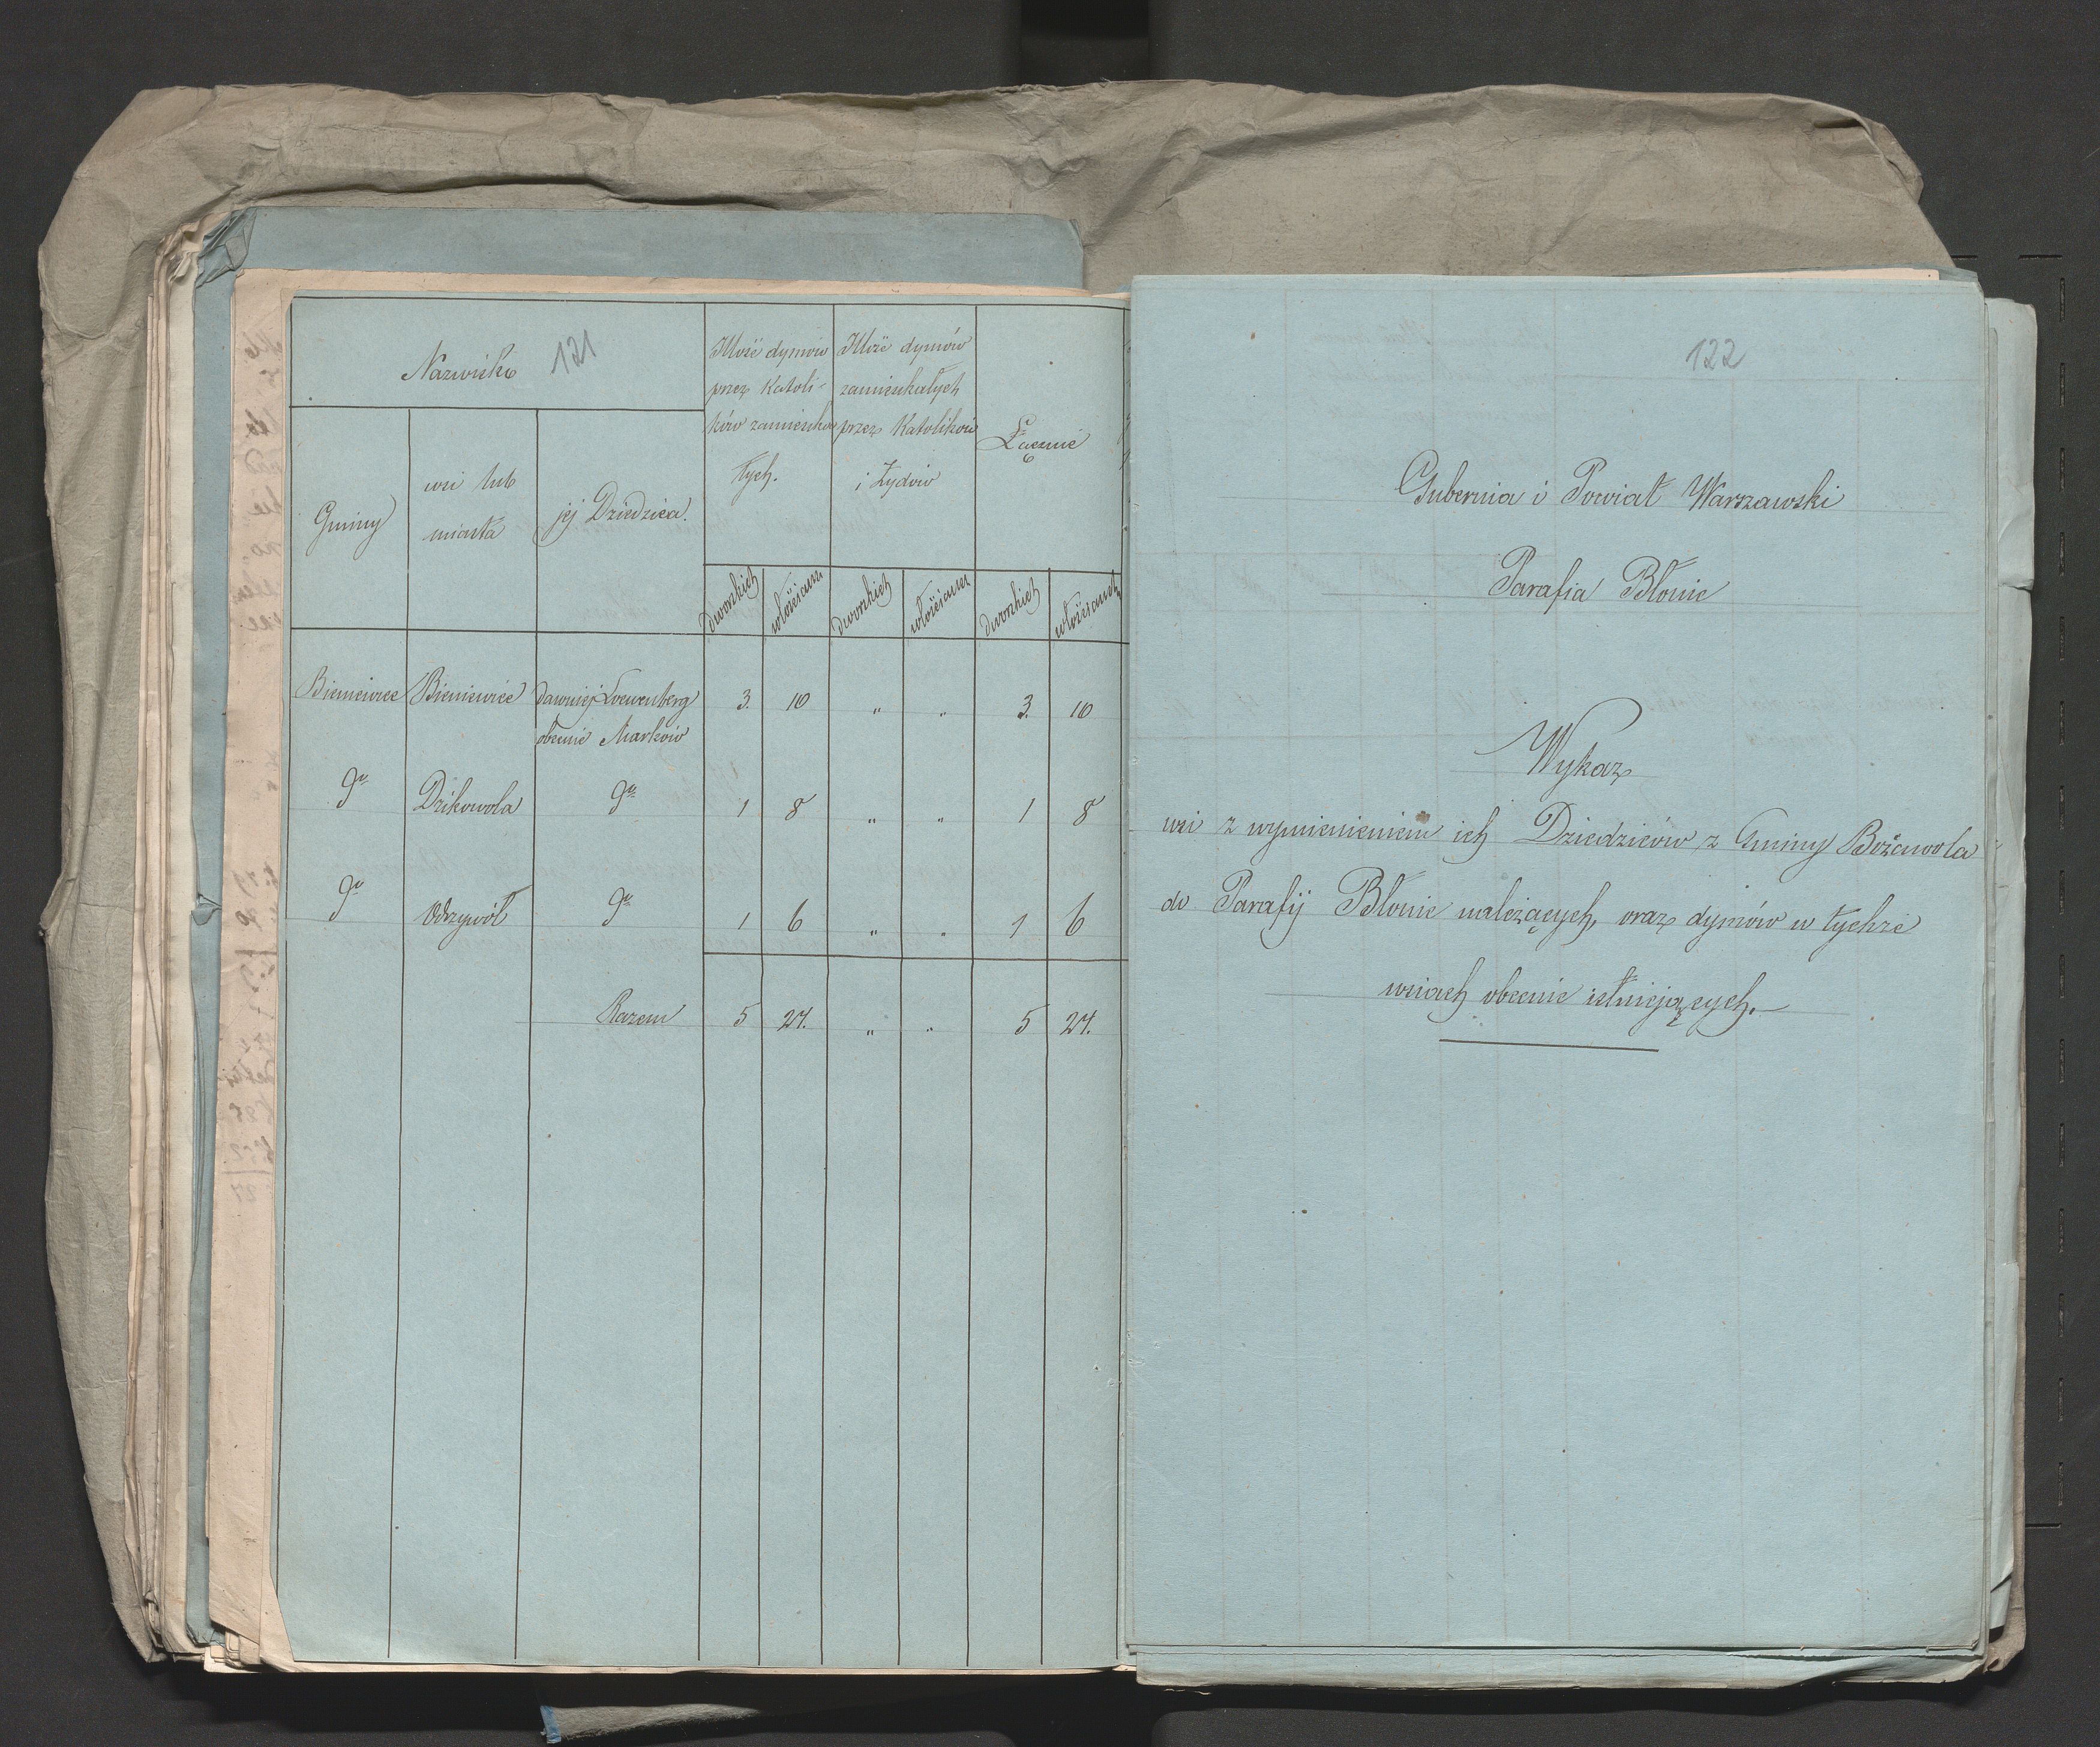 121
Nazwisko
Gminy
wsi lub
miasta
jej Dziedzica.
Ilość dymów
przez Katoli-
ków zamieszka
łych.
Ilość dymów
zamieszkałych
przez Katolików
i Żydów
Łącznie
dworskich włościans dworskich włościans dworskich włościańs
Bieniewice Bieniewice dawniej Loewenberg 3. 10 " " 3. 10
obecnie Marków
do Dzikowola do 1 8 " " 1 8
do Odrzywół do 1 6 " " 1 6
Razem 5 24. " " 5 24.
122
Gubernia i Powiat Warszawski
Parafia Błonie
Wykaz
wsi z wymienieniem ich Dziedziców z Gminy Bożawola
do Parafij Błonie należących, oraz dymów w tychże
wsiach obecnie istniejących.—